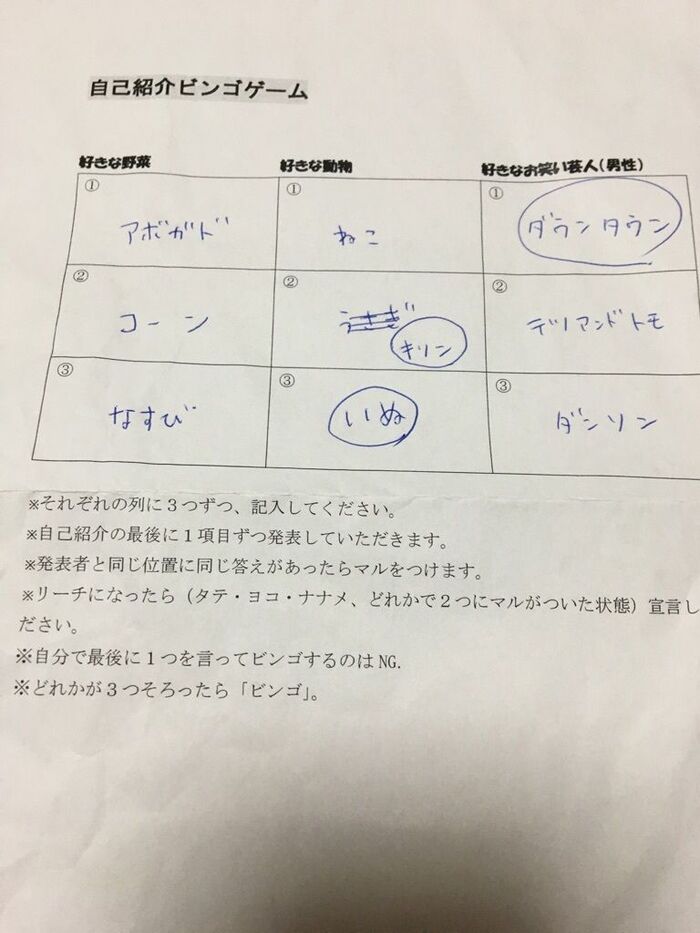 自己紹介ビンゴゲーム
好きな野菜 好きな動物 好きなお笑い芸人(男性)
① ① ①
アボガド ねこ ダウンタウン
② ② ②
コーン うさぎ テツアンドトモ
キリン
③ ③ ③
なすび いぬ ダンソン
※それぞれの列に３つずつ、記入してください。
※自己紹介の最後に１項目ずつ発表していただきます。
※発表者と同じ位置に同じ答えがあったらマルをつけます。
※リーチになったら（タテ・ヨコ・ナナメ、どれかで２つにマルがついた状態）宣言し
ださい。
※自分で最後に１つを言ってビンゴするのは NG.
※どれかが３つそろったら「ビンゴ」。